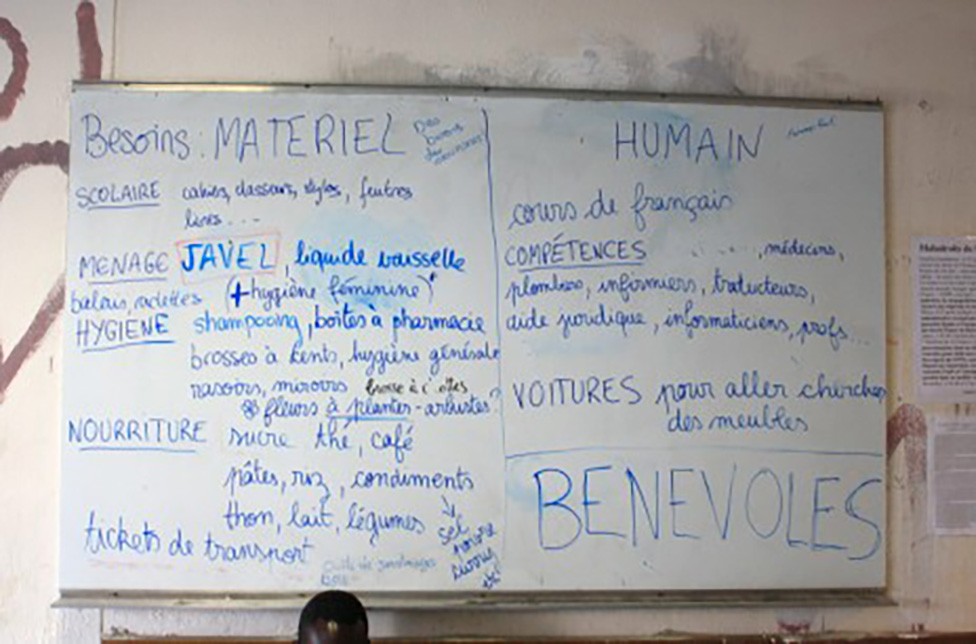 Besoins : MATERIEL
Des
SCOLAIRE cahiers, classeurs, stylos, feutres
livres ...
MENAGE JAVEL, liquide vaisselle
balais, raclettes (+ hygiène féminine)
HYGIENE shampooing, boîtes à pharmacie
brosses à dents, hygiène générale
rasoirs, miroirs brosse à
fleurs à plantes - arbustes ?
NOURRITURE sucre thé, café
pâtes, riz, condiments
thon, lait, légumes
sel
poivre
etc
tickets de transport
HUMAIN
cours de français
COMPÉTENCES médecins,
plombiers, infirmiers, traducteurs,
aide juridique, informaticiens, profs...
VOITURES pour aller chercher
des meubles
BENEVOLES